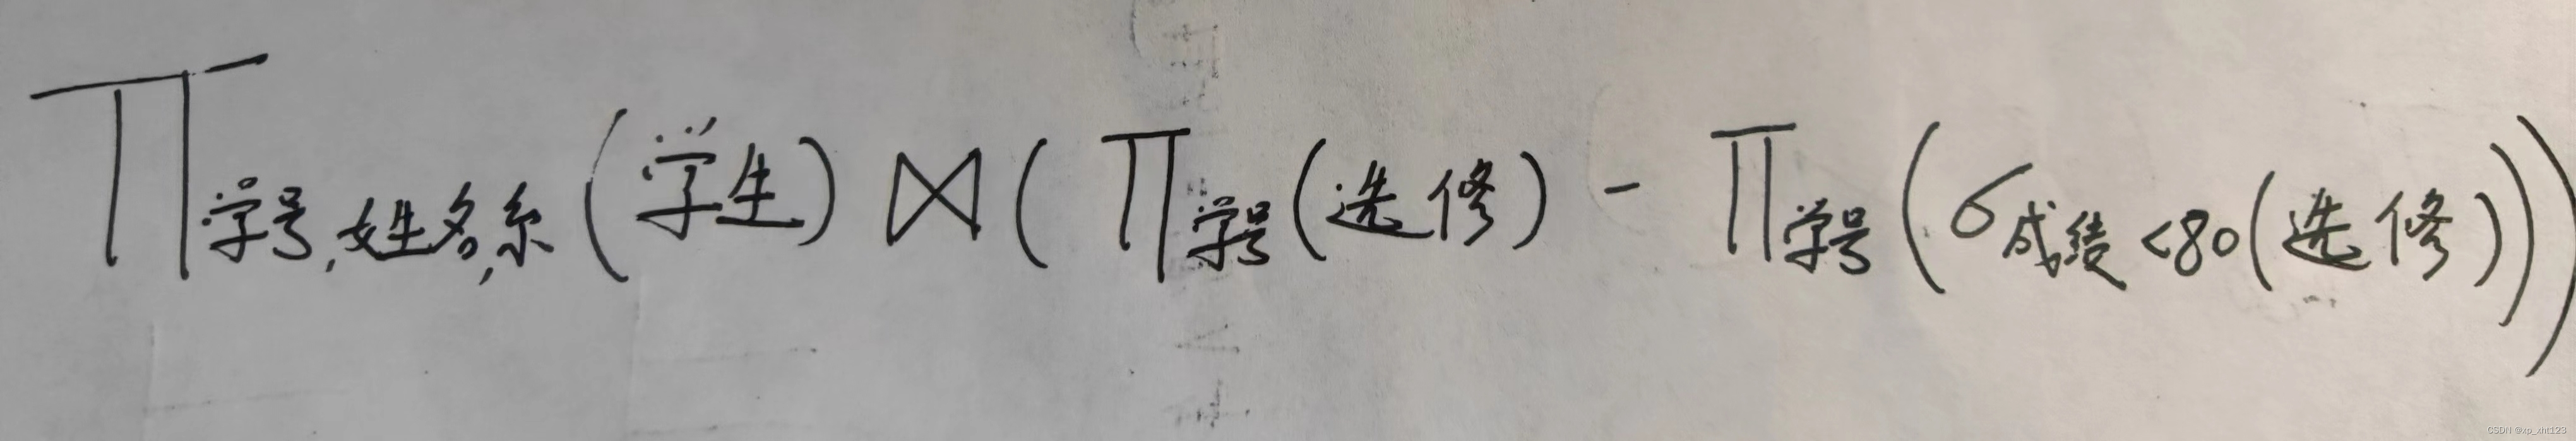 ∏学号,姓名,系(学生)⋈(∏学号(选修)-∏学号(σ成绩<80(选修)))
CSDN @xp_xht123